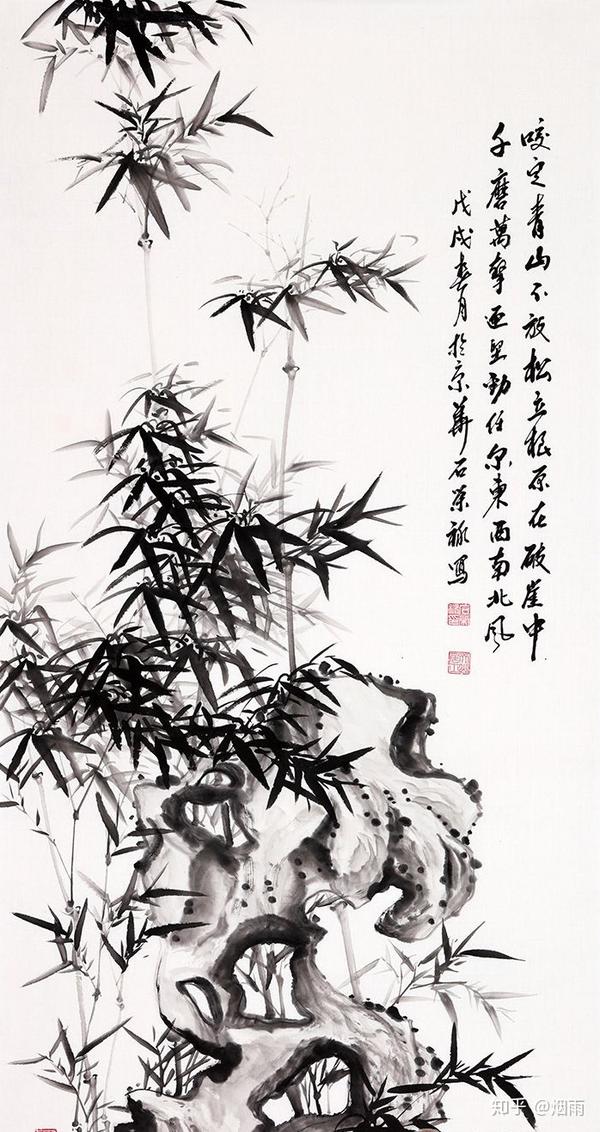 咬定青山不放松立根原在破崖中
千磨萬擊还坚劲任尔東西南北风
戊戌春月於京華石荣禄写
知乎 @烟雨